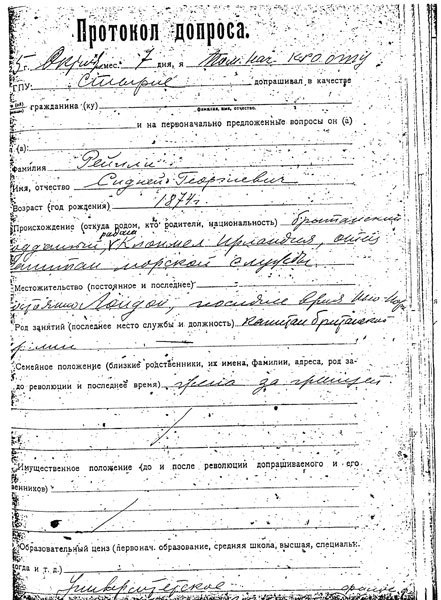 Протокол допроса.
5 г. Октяб. мес. 7 дня, я Пом. нач. КРО ОГПУ
ГПУ: Стырне допрашивал в качестве
гражданина (ку)
фамилия, имя, отчество.
и на первоначально предложенные вопросы он (а)
(а):
фамилия Рейлли
Имя, отчество Сидней Георгиевич
Возраст (год рождения) 1874 г
Происхождение (откуда родом, кто родители, национальность) британский
подданный, Клонмел Ирландия, отец
капитан морской службы
Местожительство (постоянное и последнее)
постоянно Лондон, последнее время Нью
Род занятий (последнее место службы и должность) капитан британской
армии
Семейное положение (близкие родственники, их имена, фамилии, адреса, род за-
до революции и последнее время) жена за границей
Имущественное положение (до и после революции допрашиваемого и его
венников)
Образовательный ценз (первонач. образование, средняя школа, высшая, специальн.
когда и т. д.)
Университетское